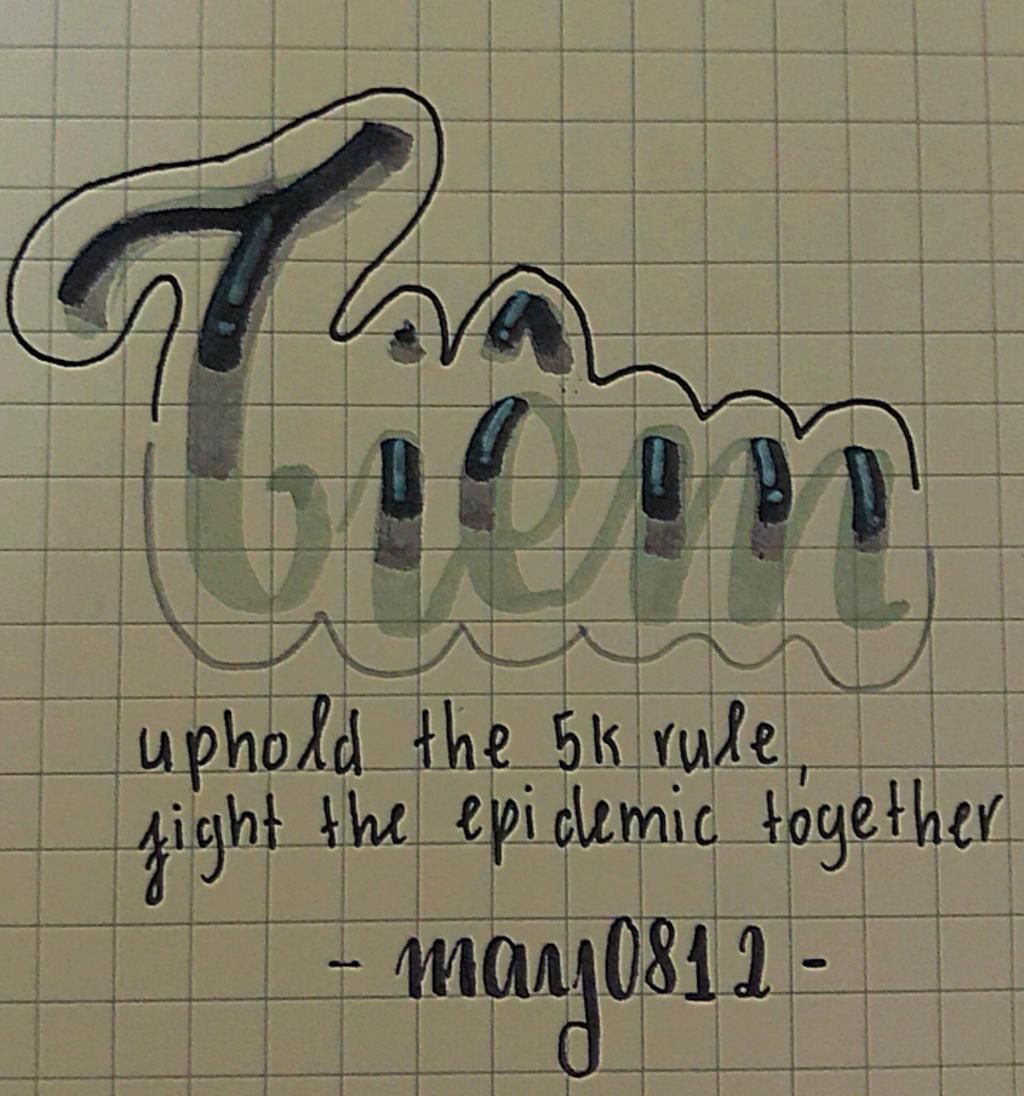 Tiêm
uphold the 5k rule,
fight the epidemic together
- may0812 -